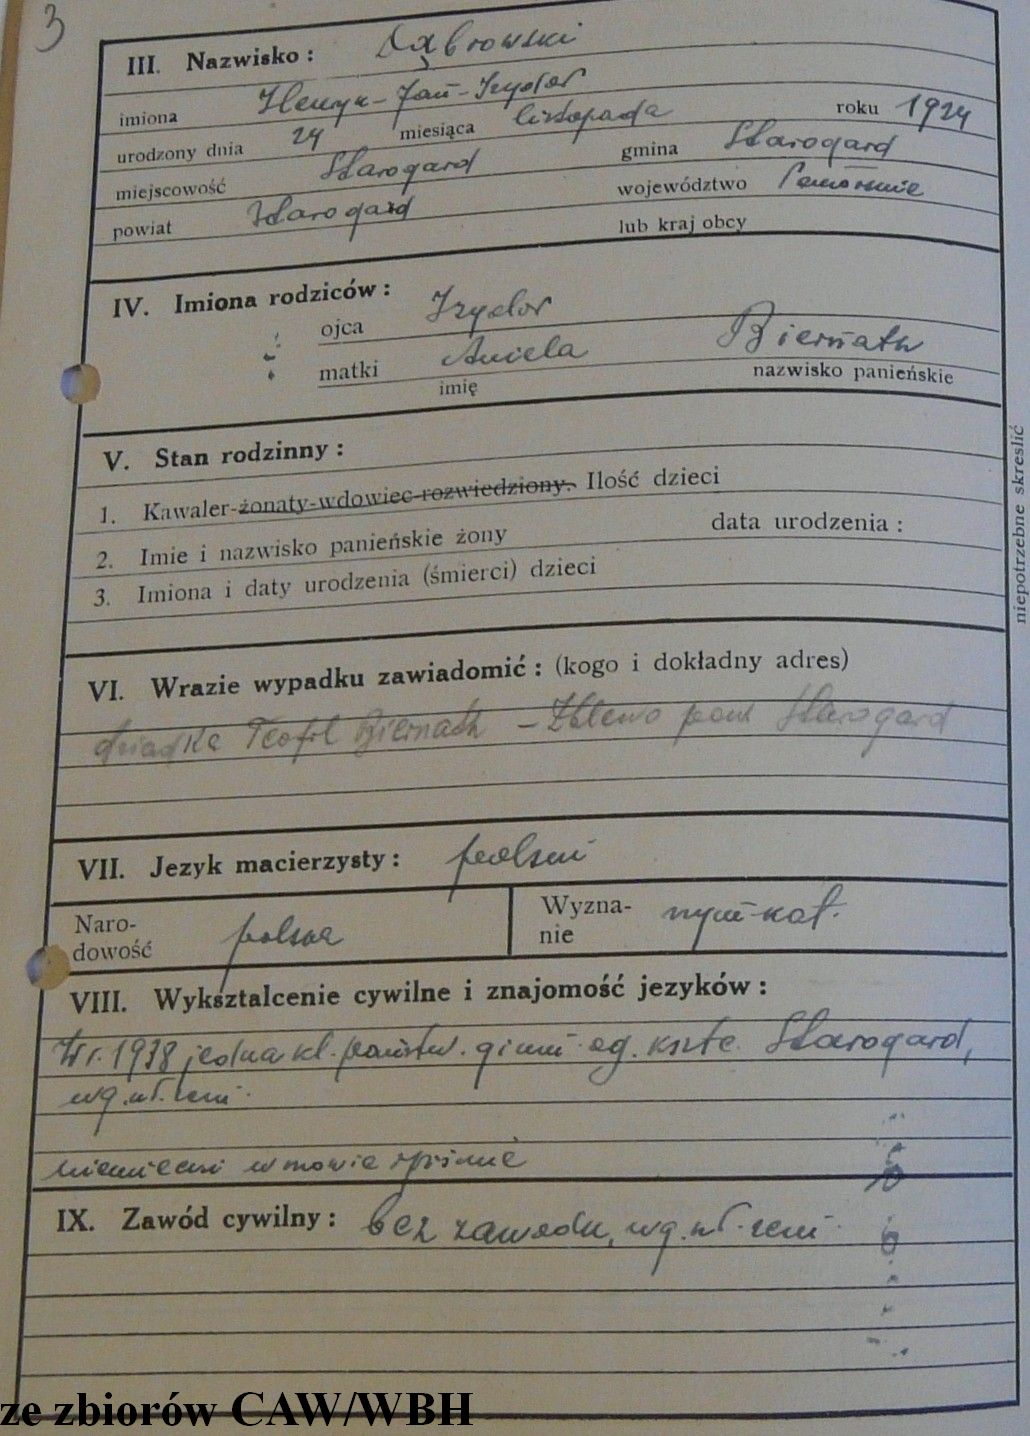 3
III. Nazwisko: Dąbrowski
imiona Henryk-Jan-Izydor
urodzony dnia 24 miesiąca listopada roku 1924
miejscowość Starogard gmina Starogard
powiat Starogard województwo Pomorskie
lub kraj obcy
IV. Imiona rodziców:
ojca Izydor
matki Aniela Biernath
imię nazwisko panieńskie
V. Stan rodzinny:
1. Kawaler-żonaty-wdowiec-rozwiedziony. Ilość dzieci
2. Imie i nazwisko panieńskie żony data urodzenia:
3. Imiona i daty urodzenia (śmierci) dzieci
niepotrzebne skreslić
VI. Wrazie wypadku zawiadomić: (kogo i dokładny adres)
dziadka Teofil Biernath - Zblewo pow Starogard
VII. Jezyk macierzysty: polski
Naro-
dowość polska
Wyzna-
nie rzym-kat.
VIII. Wykształcenie cywilne i znajomość jezyków:
W r. 1938 jedna kl. państw. gimn. og. kszt. Starogard,
wg. wł. zezn.
niemiecki w mowie i piśmie
IX. Zawód cywilny: bez zawodu, wg. wł. zezn.
ze zbiorów CAW/WBH